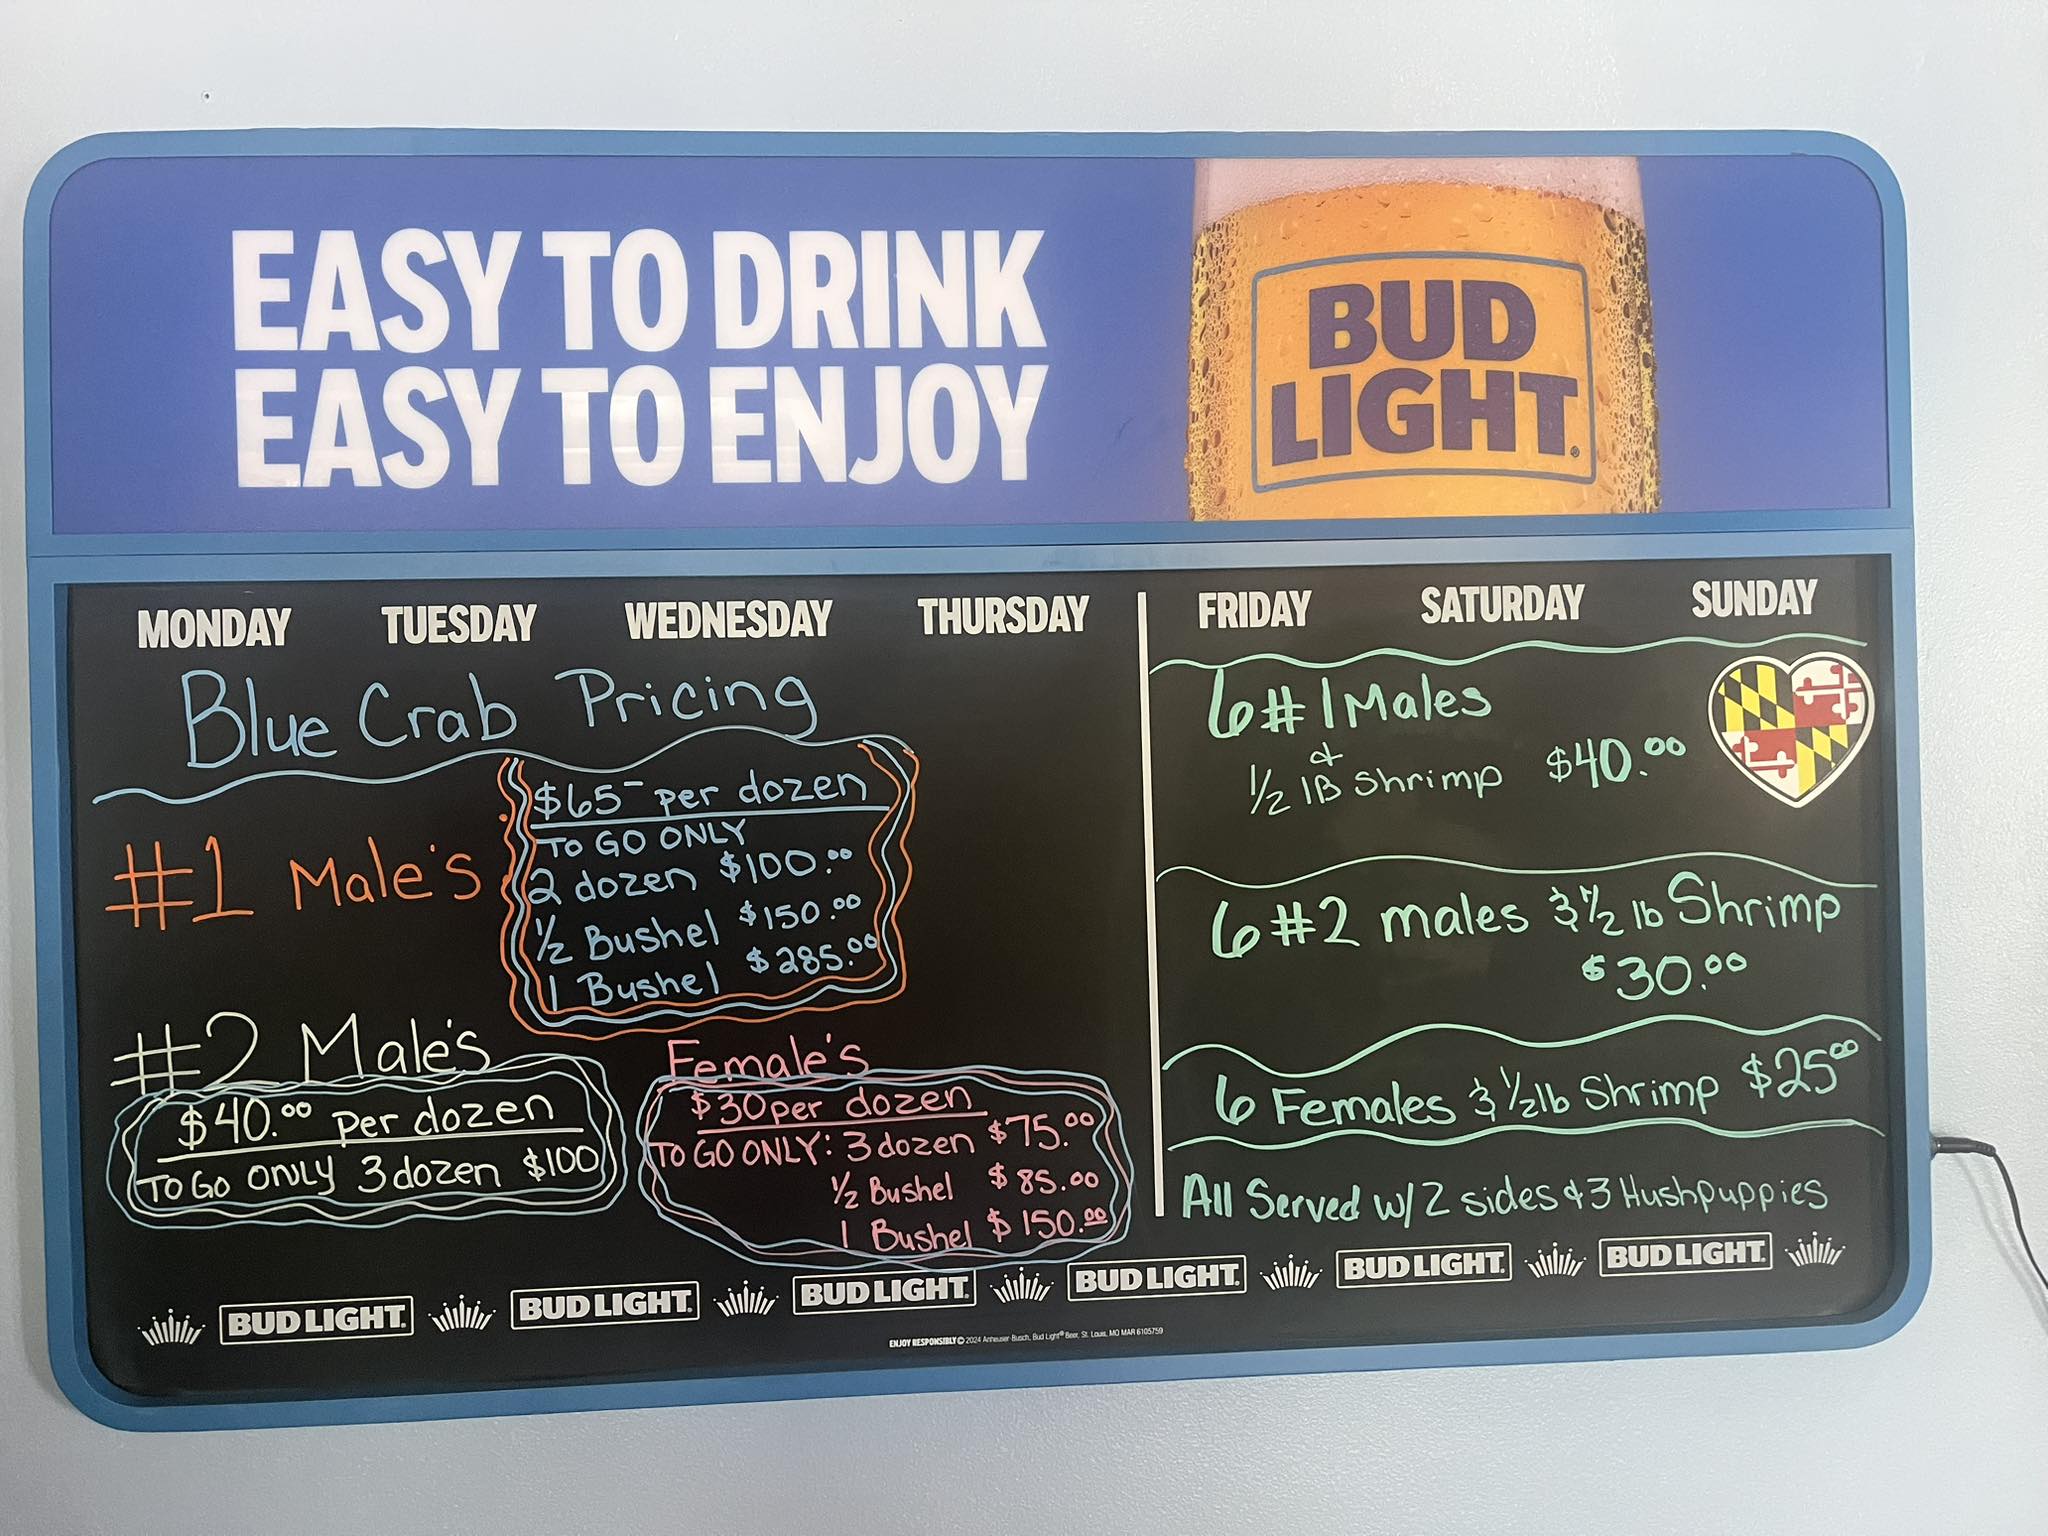 EASY TO DRINK
EASY TO ENJOY
BUD
LIGHT®
MONDAY TUESDAY WEDNESDAY THURSDAY
Blue Crab Pricing
#1 Male's
$65- per dozen
TO GO ONLY
2 dozen $100.00
1/2 Bushel $150.00
1 Bushel $285.00
#2 Male's
$40.00 per dozen
TO GO ONLY 3 dozen $100
Female's
$30 per dozen
TO GO ONLY: 3 dozen $75.00
1/2 Bushel $85.00
1 Bushel $150.00
FRIDAY SATURDAY SUNDAY
6 #1 Males
&
1/2 lB Shrimp $40.00
6 #2 males & 1/2 lb Shrimp
$30.00
6 Females & 1/2 lb Shrimp $25.00
All Served w/ 2 sides & 3 Hushpuppies
BUD LIGHT. BUD LIGHT. BUD LIGHT. BUD LIGHT. BUD LIGHT. BUD LIGHT.
ENJOY RESPONSIBLY © 2024 Anheuser-Busch, Bud Light® Beer, St. Louis, MO MAR 6105759